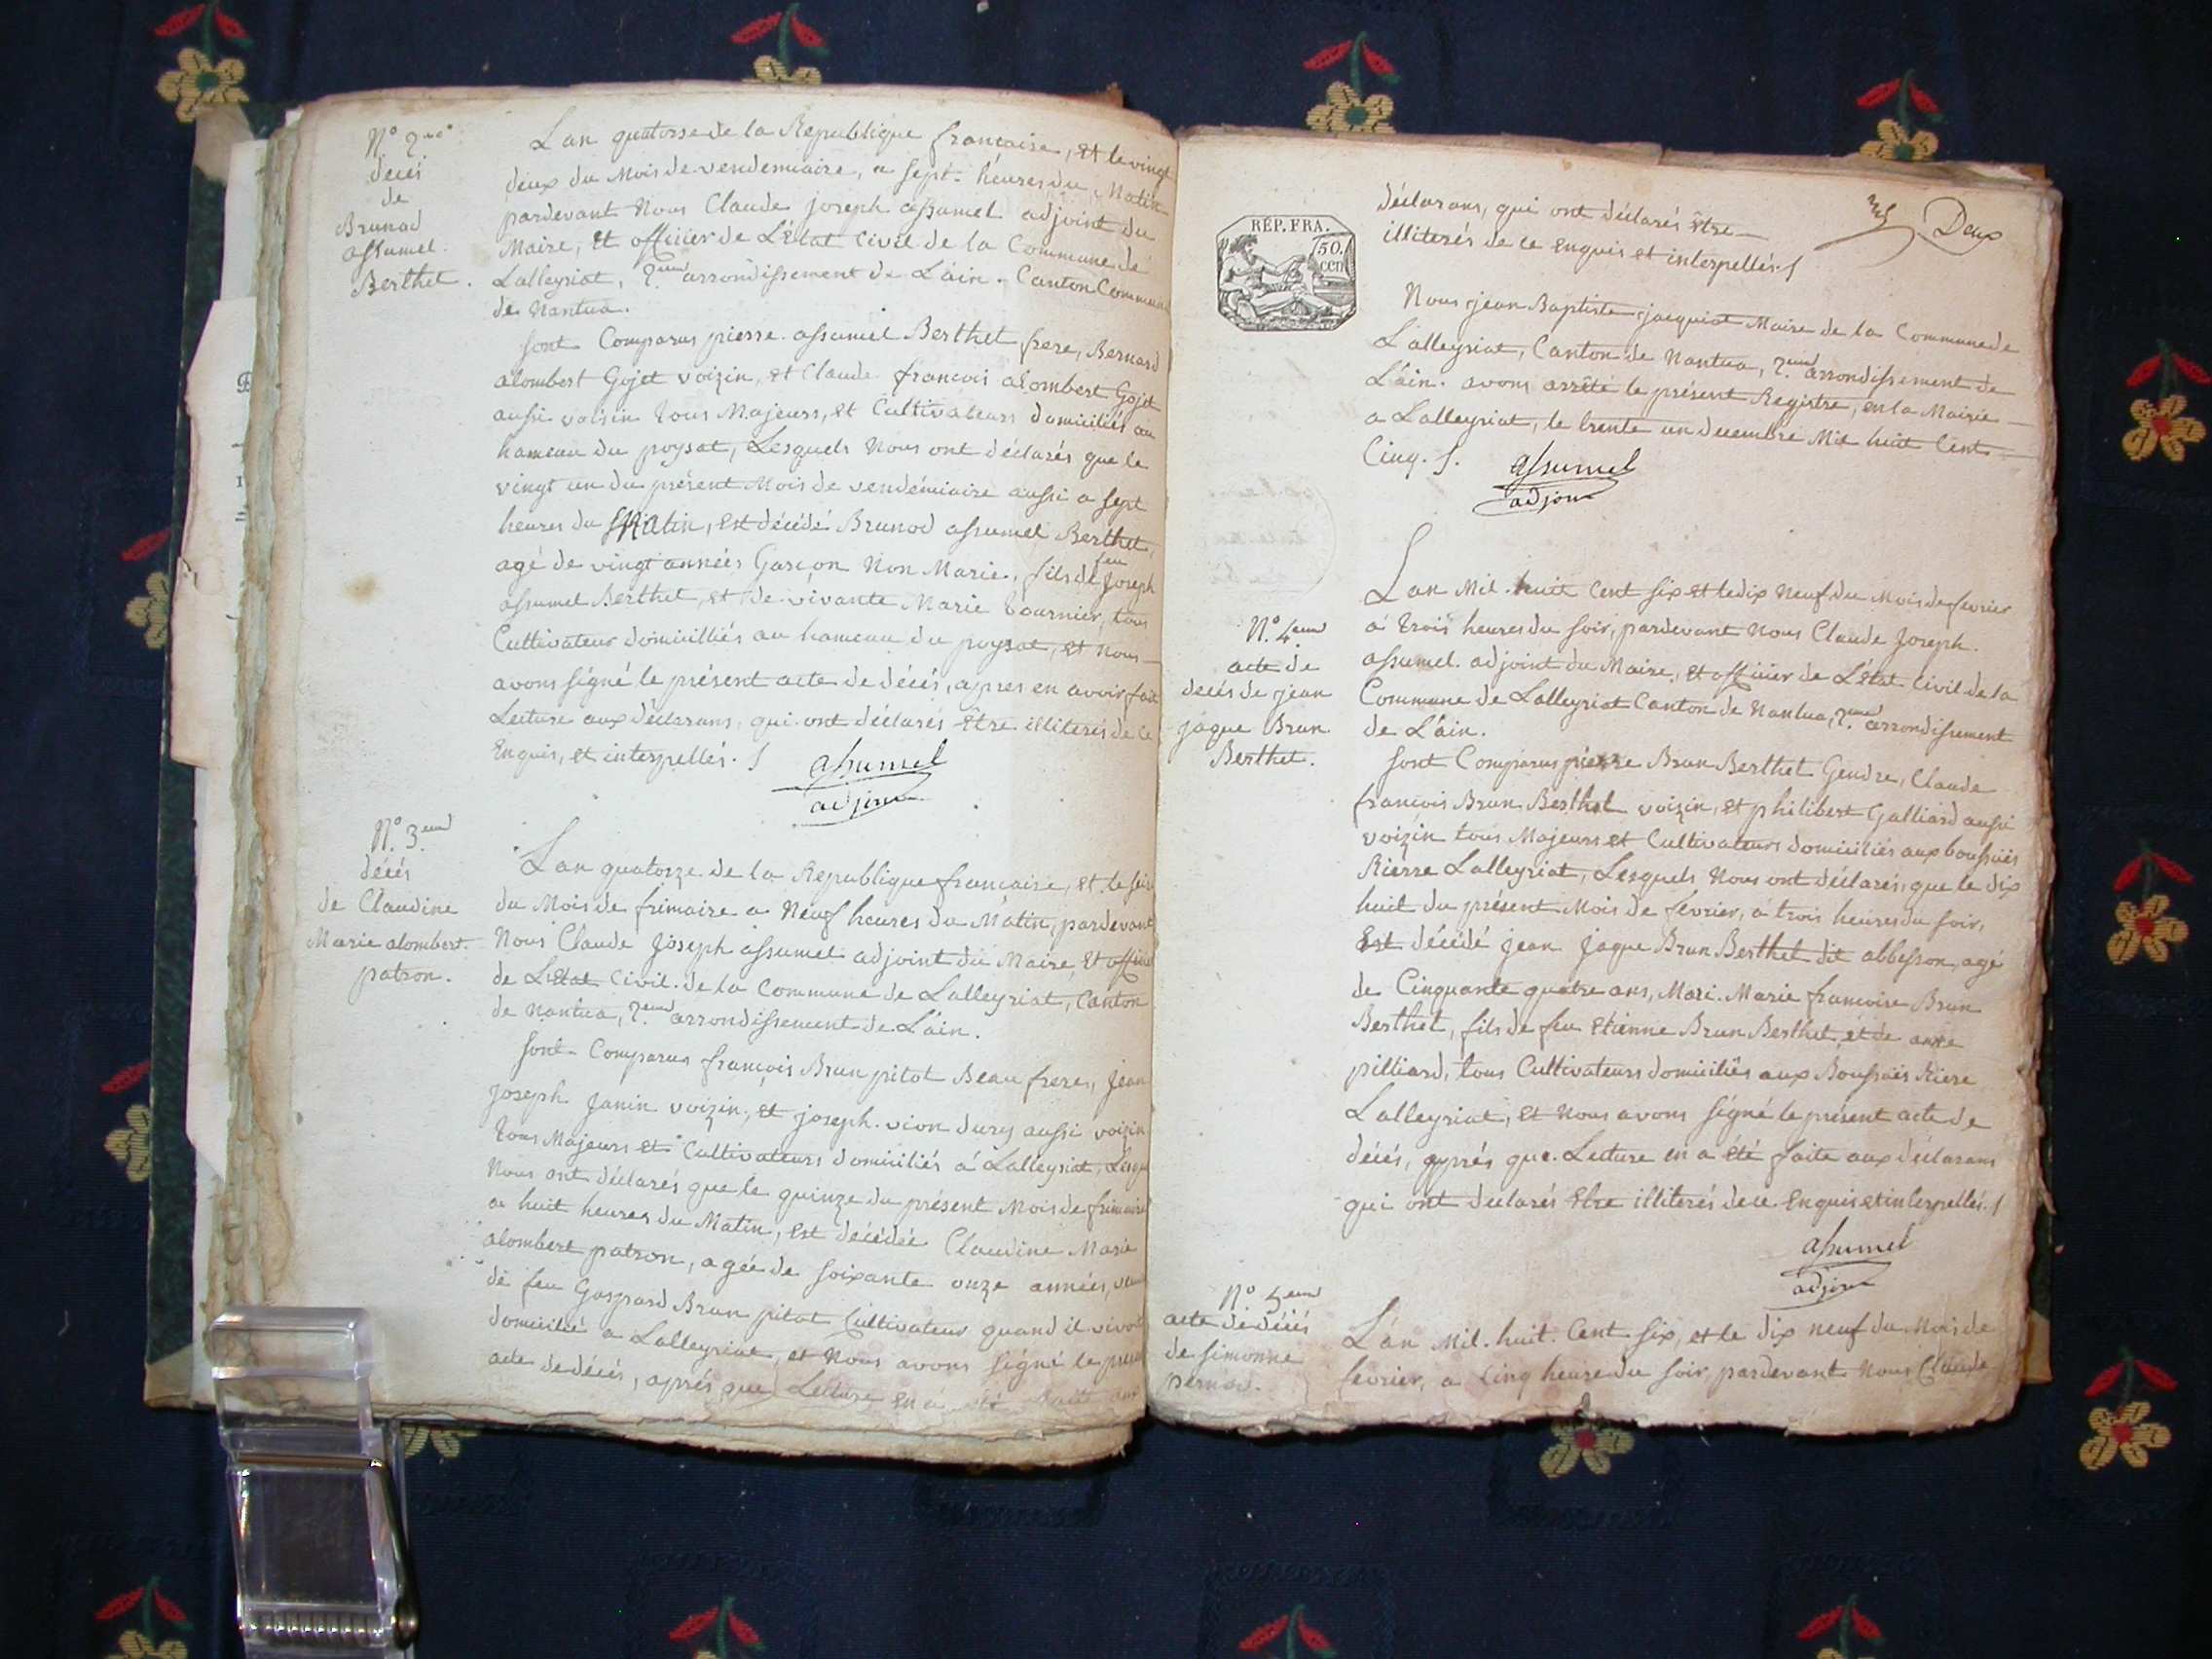 N.° 2.eme
décés
de
Brunod
assumel
Berthet.
Lan quatorse de la Republique francaise, et le vingt
deux du Mois de vendemiaire, a sept heures du Matin
pardevant Nous Claude joseph assumel adjoint du
Maire, et officier de L'état Civil de la Commune de
Lalleyriat, 2.eme arrondissement de L'ain. Canton Commune
de Nantua.
sont Comparus pierre assumel Berthet frere, Bernard
alombert Gojet voizin, et Claude francois alombert Gojet
aussi voisin tous Majeurs, et Cultivateurs domiciliés au
hameau du poysat, Lesquels Nous ont déclarés que le
vingt un du présent Mois de vendémiaire aussi a sept
heures du Matin, est décédé Brunod assumel Berthet,
agé de vingt années Garçon Non Marié, fils de feu Joseph
assumel Berthet, et de vivante Marie tournier, tous
Cultivateur domicilliés au hameau du poysat, et nous
avons signé le présent acte de décés, apres en avoir fait
Lecture aux déclarans, qui ont déclarés Être illiterés de ce
Enquis, et interpellés. /
assumel
adjoin
N.° 3.eme
décés
de Claudine
Marie alombert
patron.
Lan quatorze de la Republique francaise, et le seize
du Mois de frimaire a Neuf heures du Matin, pardevant
Nous Claude Joseph assumel adjoint du Maire, et officier
de L'etat Civil de la Commune de Lalleyriat, Canton
de Nantua, 2.eme arrondissement de L'ain.
sont Comparus françois Brun pitot Beau frere, Jean
Joseph Janin voizin, et joseph vion dury aussi voizin
tous Majeurs et Cultivateurs domiciliés á Lalleyriat, Lesquels
Nous ont déclarés que le quinze du présent Mois de frimaire
a huit heures du Matin, est décédée Claudine Marie
alombert patron, agée de soixante onze années, veuve
de feu Gaspard Brun pitot Cultivateur quand il vivoit
domicilié a Lalleyriat, et Nous avons signé le présent
acte de décés, aprés que Lecture en a été faite aux
déclarans, qui ont déclarés Être
illiterés de ce enquis et interpellés. /
Deux
RÉP. FRA.
50.
cen
Nous jean Baptiste jacquiot Maire de la Commune de
Lalleyriat, Canton de Nantua, 2.eme arrondissement de
L'ain. avons arrêté le présent Registre, en la Mairie
a Lalleyriat, le trente un decembre Mil huit Cent
Cinq. /.
assumel
adjoin
N.° 4.eme
acte de
decés de jean
jaque Brun
Berthet.
Lan Mil huit Cent six et le dix neuf du Mois de fevrier
á trois heures du soir, pardevant Nous Claude Joseph
assumel adjoint du Maire, et officier de L'état Civil de la
Commune de Lalleyriat Canton de Nantua, 2.eme arrondissement
de L'ain.
sont Comparus pierre Brun Berthet Gendre, Claude
francois Brun Berthet voizin, et philibert Galliard aussi
voizin tous Majeurs et Cultivateurs domiciliés aux boussuës
Rierre Lalleyriat, Lesquels Nous ont déclarés, que le dix
huit du présent Mois de février, á trois heures du soir,
Est décédé jean Jaque Brun Berthet dit abbesson, agé
de Cinquante quatre ans, Mari Marie francoise Brun
Berthet, fils de feu Etienne Brun Berthet, et de anne
pilliard, tous Cultivateurs domiciliés aux Boussuës Riere
Lalleyriat, et Nous avons signé le présent acte de
décés, aprés que Lecture en a été faite aux déclarans
qui ont declarés Etre illiterés de ce enquis et interpellés. /
assumel
adjoin
N.° 5.eme
acte de décés
de simonne
pernod.
L'an Mil huit Cent six, et le dix neuf du Mois de
fevrier, a Cinq heure du soir pardevant Nous Claude